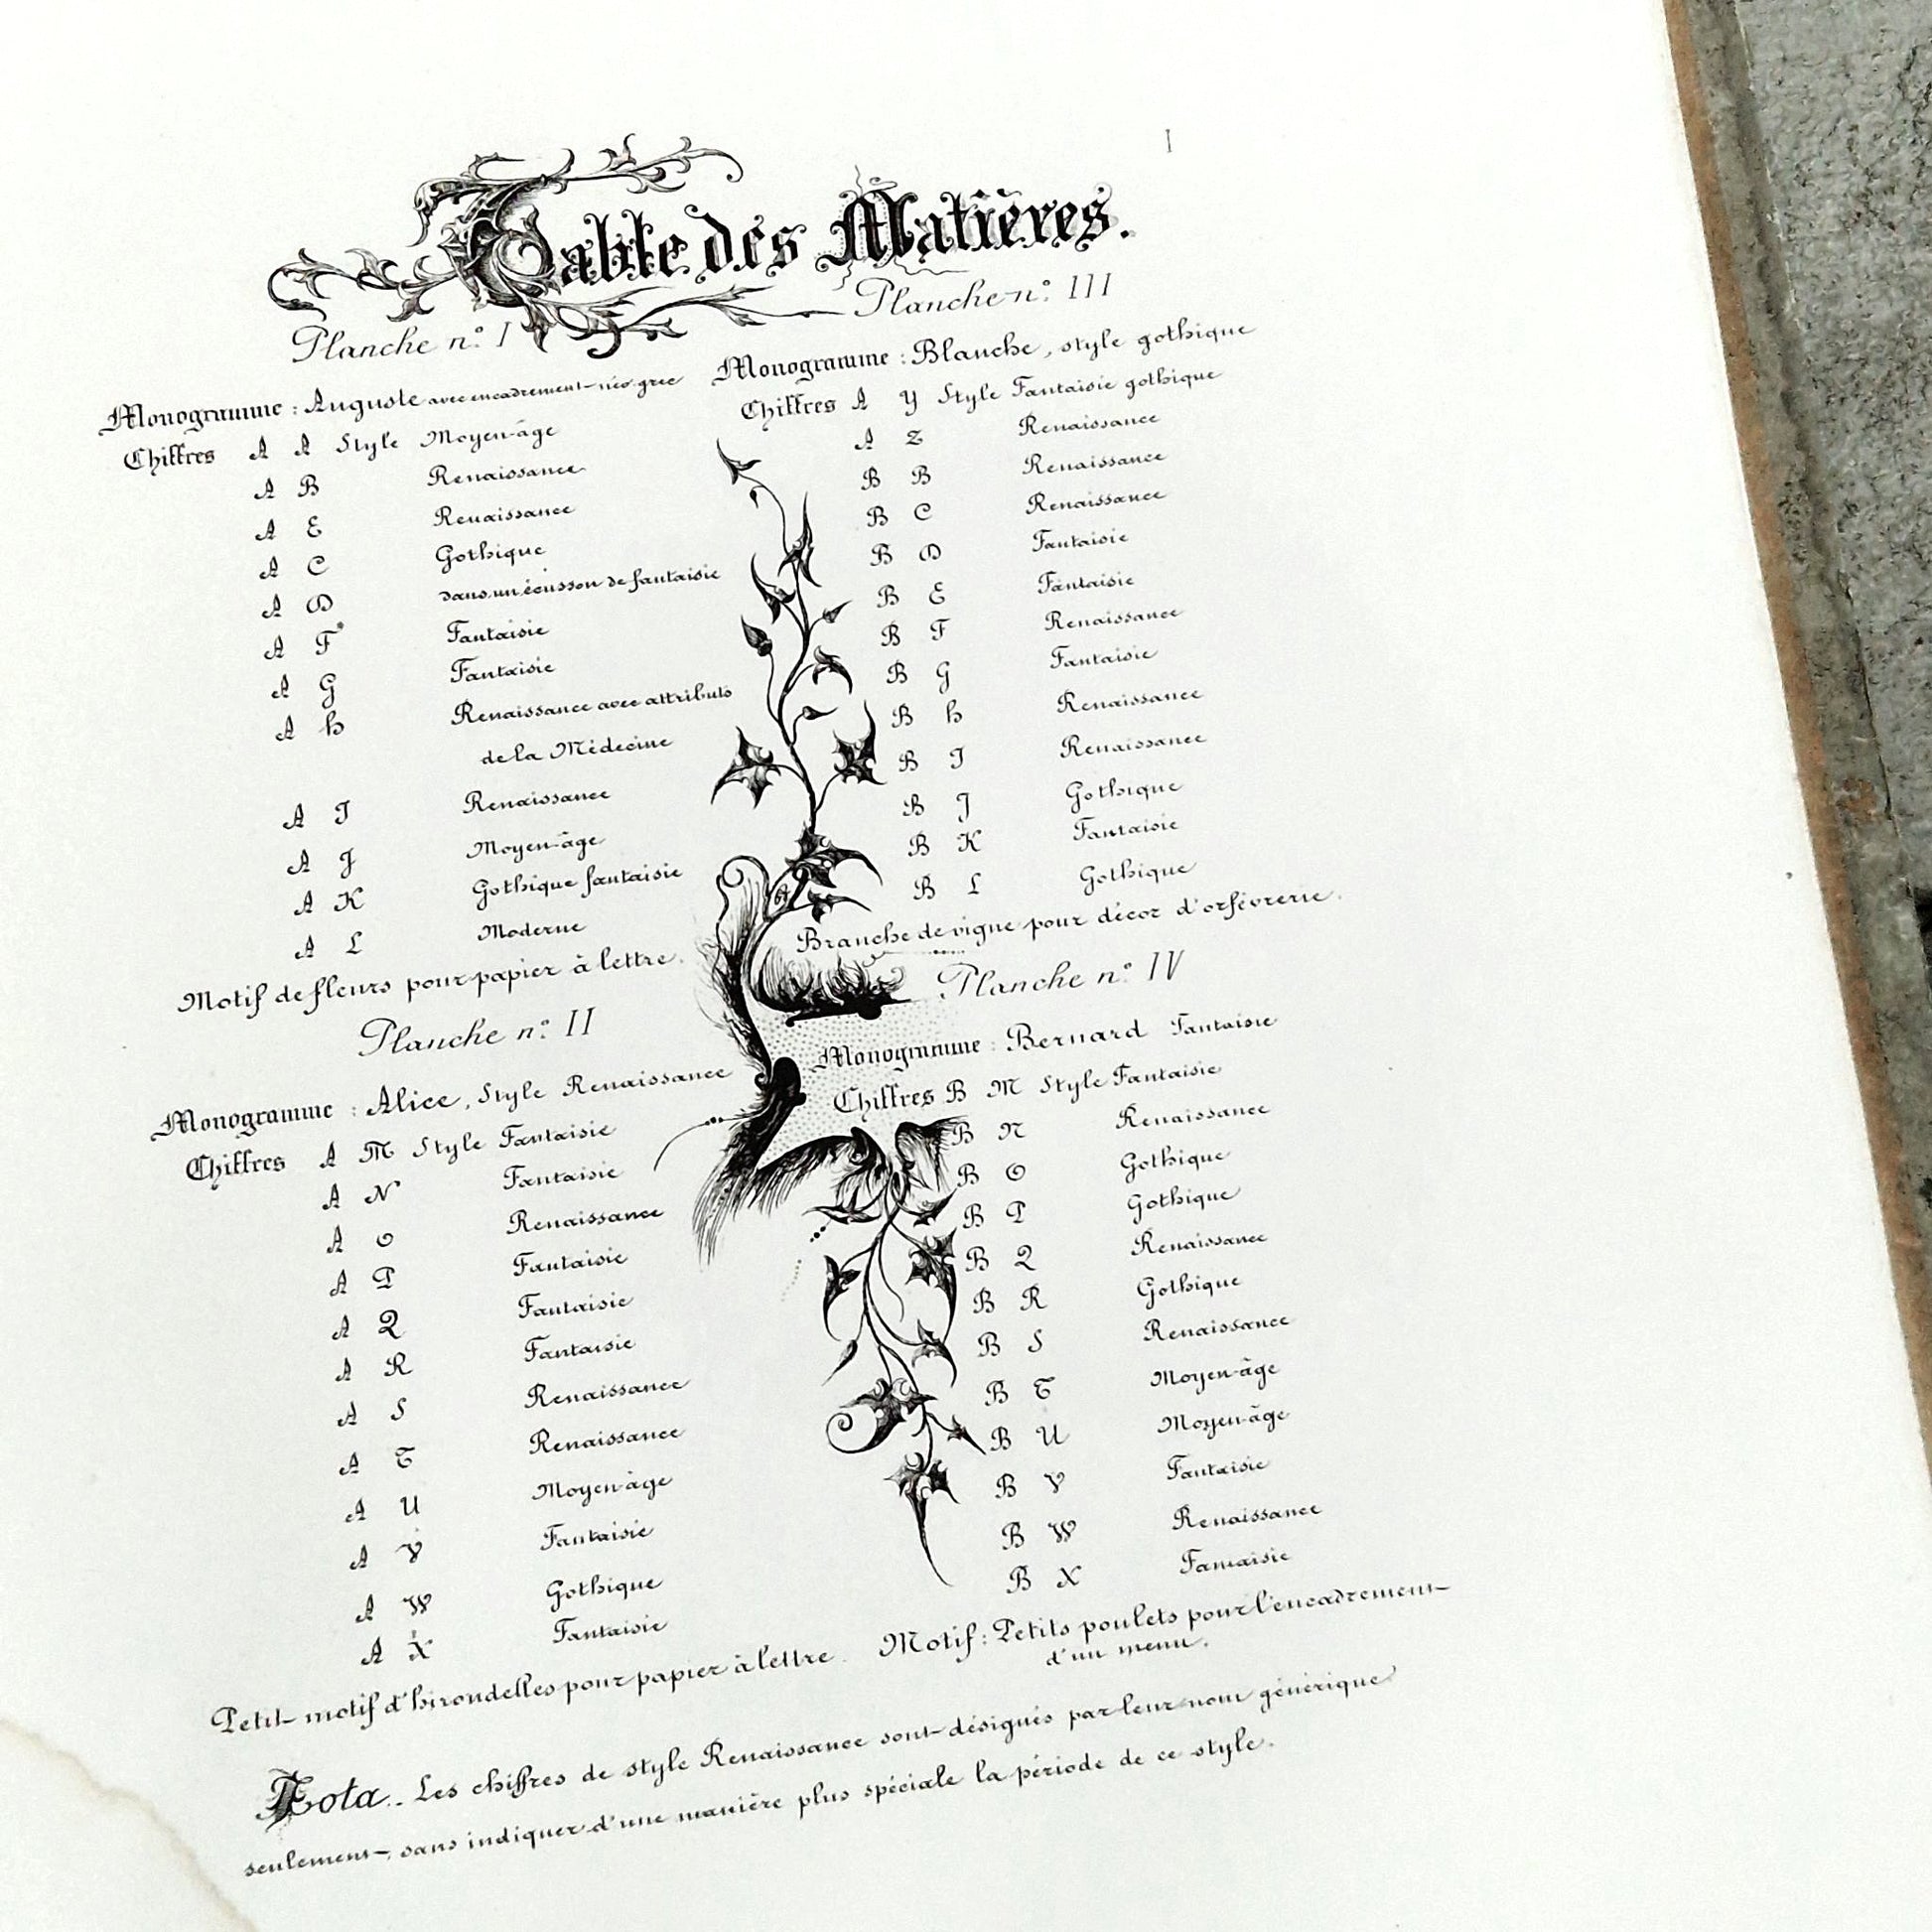 I
Table des Matières.
Planche n.° I
Monogramme : Auguste avec encadrement néo-grec
Chiffres A A Style Moyen-âge
A B Renaissance
A E Renaissance
A C Gothique
A D dans un écusson de fantaisie
A F Fantaisie
A G Fantaisie
A h Renaissance avec attributs
de la Médecine
A I Renaissance
A J Moyen-âge
A K Gothique fantaisie
A L Moderne
Motif de fleurs pour papier à lettre.
Planche n.° II
Monogramme : Alice, Style Renaissance
Chiffres A M Style Fantaisie
A N Fantaisie
A O Renaissance
A P Fantaisie
A Q Fantaisie
A R Fantaisie
A S Renaissance
A T Renaissance
A U Moyen-âge
A V Fantaisie
A W Gothique
A X Fantaisie
Petit motif d'hirondelles pour papier à lettre.
Planche n.° III
Monogramme : Blanche, style gothique
Chiffres A Y Style Fantaisie gothique
A Z Renaissance
B B Renaissance
B C Renaissance
B D Fantaisie
B E Fantaisie
B F Renaissance
B G Fantaisie
B h Renaissance
B I Renaissance
B J Gothique
B K Fantaisie
B L Gothique
Branche de vigne pour décor d'orfévrerie.
Planche n.° IV
Monogramme : Bernard Fantaisie
Chiffres B M Style Fantaisie
B N Renaissance
B O Gothique
B P Gothique
B Q Renaissance
B R Gothique
B S Renaissance
B T Moyen-âge
B U Moyen-âge
B V Fantaisie
B W Renaissance
B X Fantaisie
Motif : Petits poulets pour l'encadrement
d'un menu.
Nota.. Les chiffres de style Renaissance sont désignés par leur nom générique
seulement, sans indiquer d'une manière plus spéciale la période de ce style.